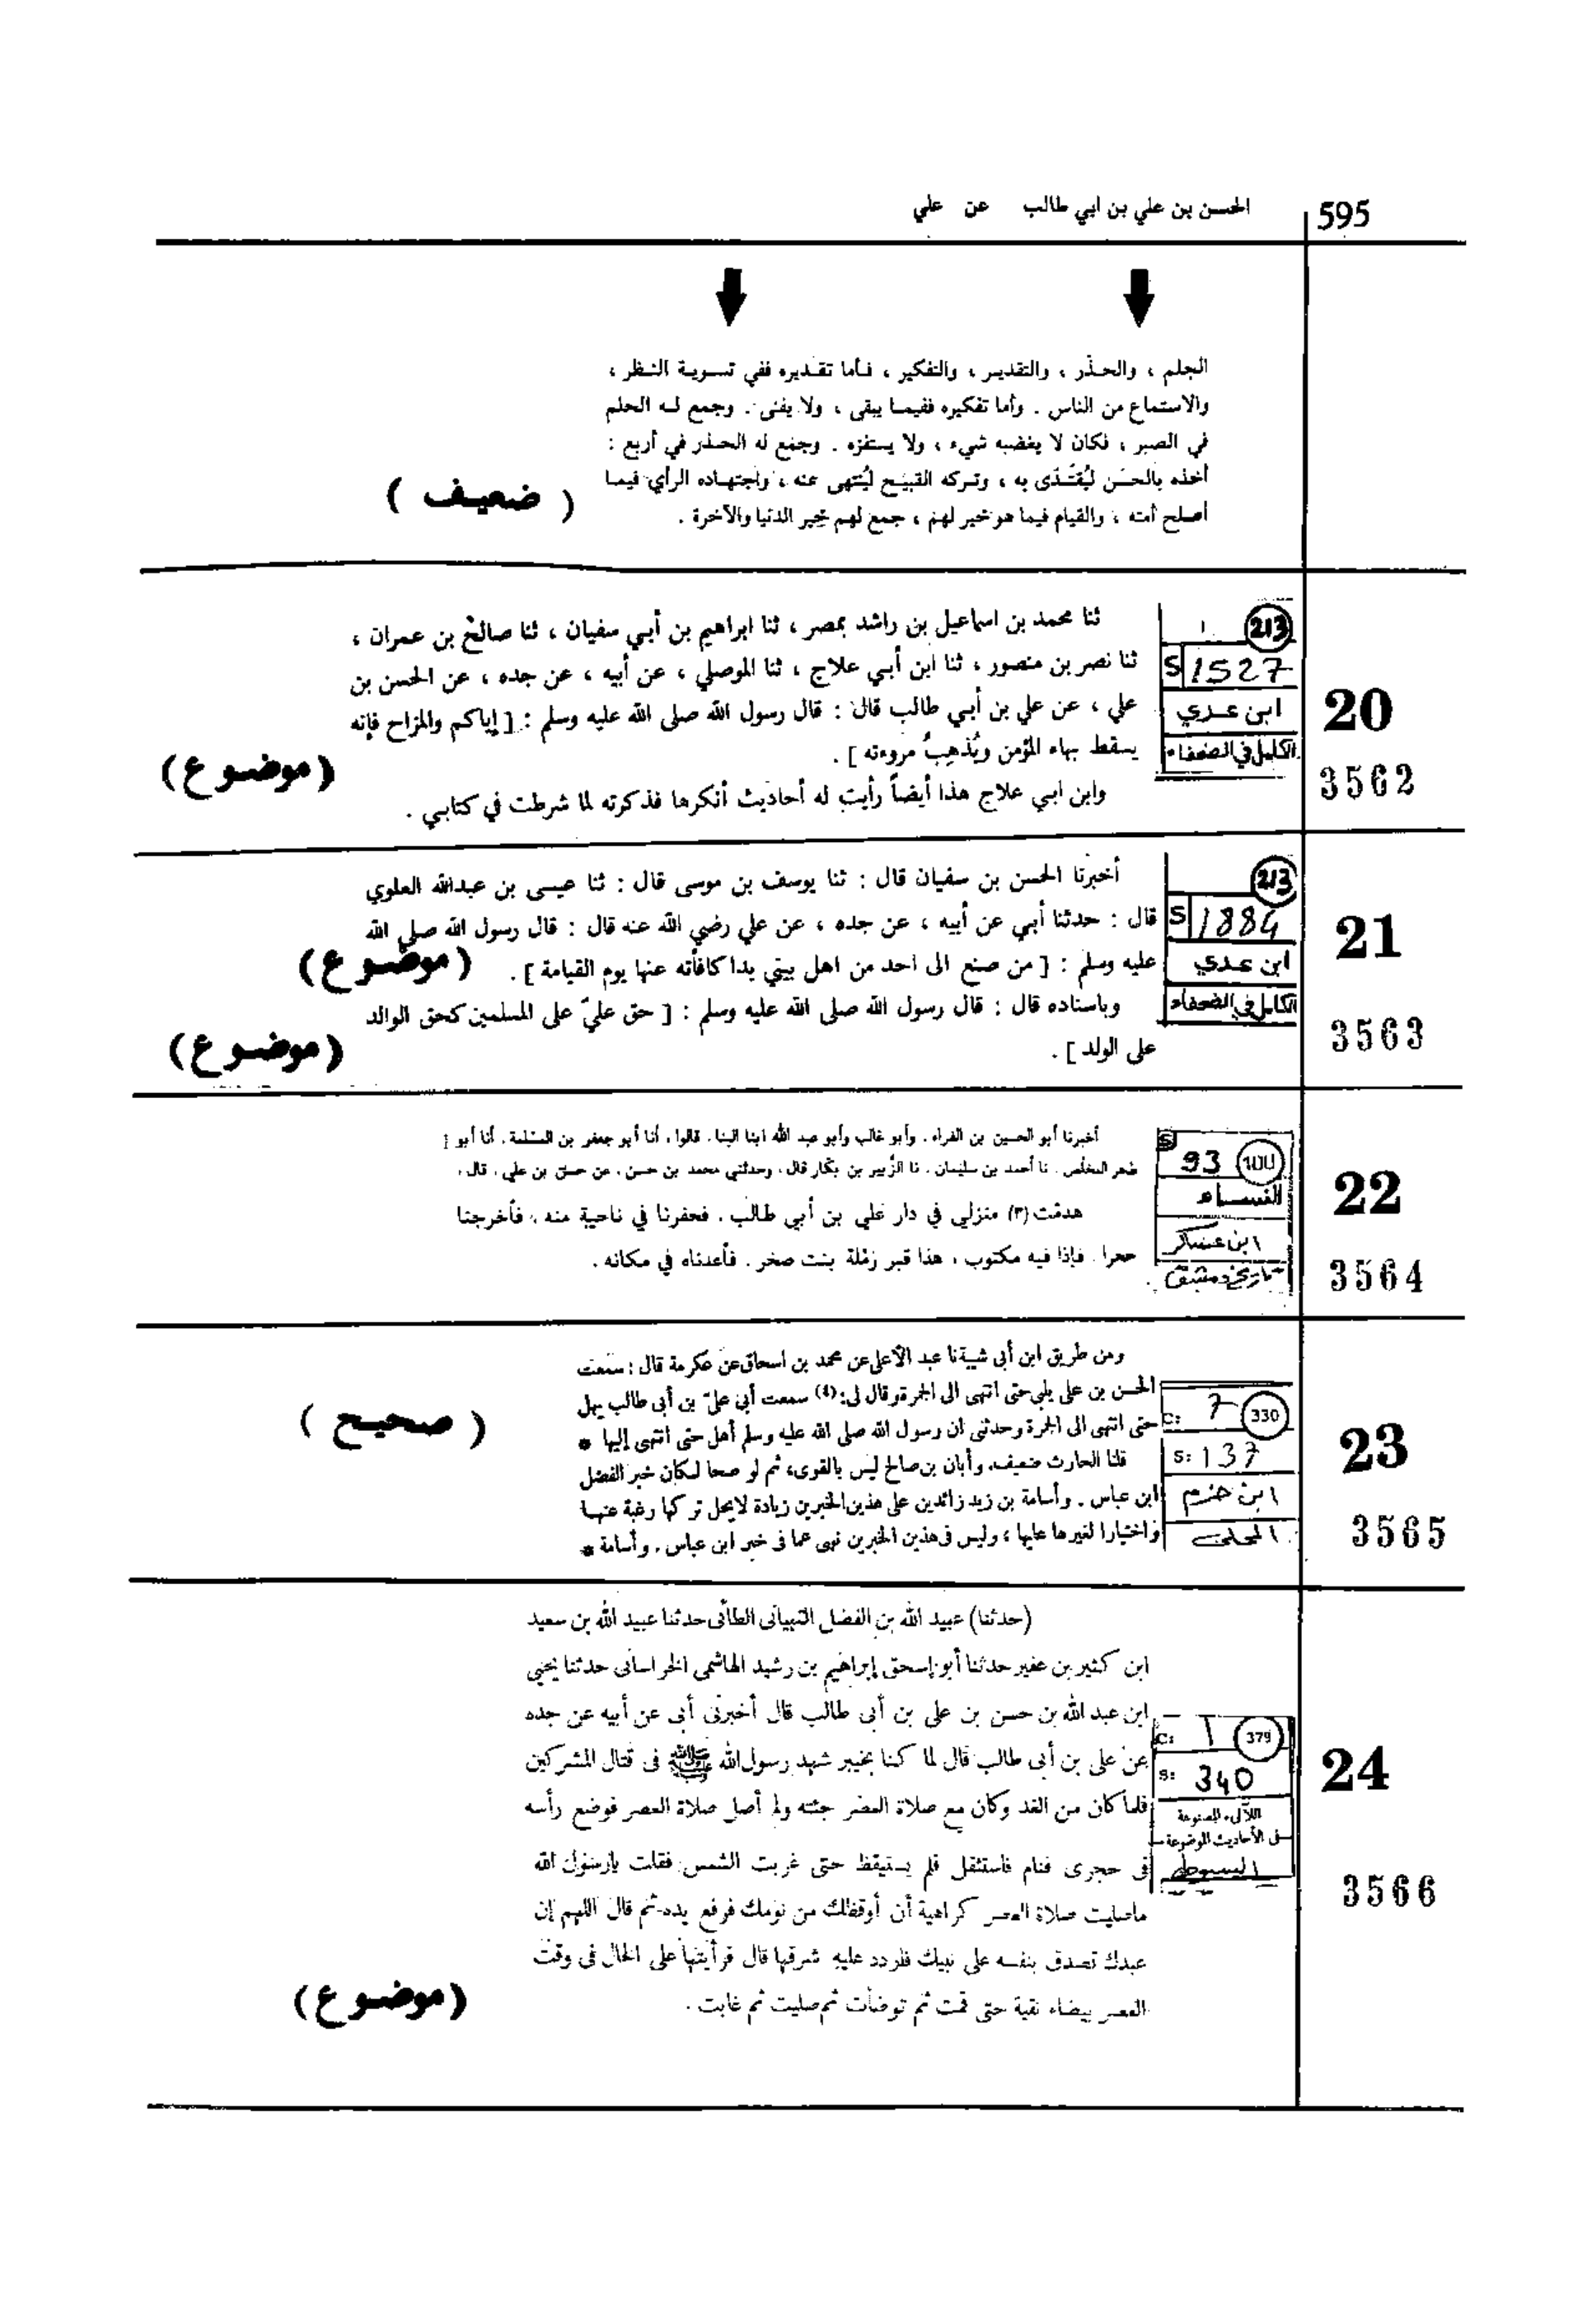 595 الحسن بن علي بن ابي طالب عن علي
الحلم ، والحذر ، والتقدير ، والتفكير ، فأما تقديره ففي تسوية النظر ،
والاستماع من الناس . وأما تفكيره ففيما يبقى ، ولا يفنى . وجمع له الحلم
في الصبر ، فكان لا يغضبه شيء ، ولا يستفزه . وجمع له الحذر في أربع :
أخذه بالحسن ليُقتَدى به ، وتركه القبيح ليُنتهى عنه ، واجتهاده الرأي فيما
أصلح أمته ، والقيام فيما هو خير لهم ، جمع لهم خير الدنيا والآخرة .
( ضعيف )
20
3562
213
S 1527
ابن عدي
الكامل في الضعفاء
ثنا محمد بن اسماعيل بن راشد بمصر ، ثنا ابراهيم بن أبي سفيان ، ثنا صالح بن عمران ،
ثنا نصر بن منصور ، ثنا ابن أبي علاج ، ثنا الموصلي ، عن أبيه ، عن جده ، عن الحسن بن
علي ، عن علي بن أبي طالب قال : قال رسول الله صلى الله عليه وسلم : [ إياكم والمزاح فإنه
يسقط بهاء المؤمن ويُذهِبُ مروءته ] .
(موضوع)
وابن ابي علاج هذا أيضاً رأيت له أحاديث أنكرها فذكرته لما شرطت في كتابي .
21
3563
213
S 1884
ابن عدي
الكامل في الضعفاء
أخبرنا الحسن بن سفيان قال : ثنا يوسف بن موسى قال : ثنا عيسى بن عبدالله العلوي
قال : حدثنا أبي عن أبيه ، عن جده ، عن علي رضي الله عنه قال : قال رسول الله صلى الله
عليه وسلم : [ من صنع الى احد من اهل بيتي يدا كافأته عنها يوم القيامة ] . (موضوع)
وباسناده قال : قال رسول الله صلى الله عليه وسلم : [ حق عليّ على المسلمين كحق الوالد
على الولد ] .
(موضوع)
22
3564
S 93 100
النساء
ابن عساكر
تاريخ دمشق
أخبرنا أبو الحسين بن الفراء، وأبو غالب وأبو عبد الله ابنا البنا، قالوا، أنا أبو جعفر بن المسلمة، أنا أبو [
طاهر المخلص، نا أحمد بن سليمان، نا الزُّبير بن بكّار قال، وحدثني محمد بن حسن، عن حسين بن علي، قال،
هدمت (٣) منزلي في دار علي بن أبي طالب، فحفرنا في ناحية منه ، فأخرجنا
حجرا. فإذا فيه مكتوب ، هذا قبر رَمْلة بنت صخر. فأعدناه في مكانه.
23
3565
C: 7 330
S: 137
ابن حزم
المحلى
ومن طريق ابن أبى شيبة نا عبد الأعلى عن محمد بن اسحاق عن عكرمة قال : سمعت
الحسن بن على يلبى حتى انتهى الى الجمرة وقال لى: (٤) سمعت أبى علىّ بن أبى طالب يهل
حتى انتهى الى الجمرة وحدثنى ان رسول الله صلى الله عليه وسلم أهل حتى انتهى إليها *
قلنا الحارث ضعيف، وأبان بن صالح ليس بالقوى، ثم لو صحا لكان خبر الفضل
ابن عباس . وأسامة بن زيد زائدين على هذين الخبرين زيادة لا يحل تركها رغبة عنها
واختيارا لغيرها عليها ، وليس فى هذين الخبرين نهى عما فى خبر ابن عباس . وأسامة *
( صحيح )
24
3566
C: 1 379
S: 340
اللآلىء المصنوعة
فى الأحاديث الموضوعة
السيوطي
(حدثنا) عبيد الله بن الفضل التبيانى الطائى حدثنا عبيد الله بن سعيد
ابن كثير بن عفير حدثنا أبو إسحق إبراهيم بن رشيد الهاشمى الخراسانى حدثنا يحيى
ابن عبد الله بن حسن بن على بن أبى طالب قال أخبرنى أبى عن أبيه عن جده
عن على بن أبى طالب قال لما كنا بخيبر شهد رسول الله ﷺ فى قتال المشركين
فلما كان من الغد وكان مع صلاة العصر جئته ولم أصل صلاة العصر فوضع رأسه
فى حجرى فنام فاستثقل فلم يستيقظ حتى غربت الشمس فقلت يا رسول الله
ما صليت صلاة العصر كراهية أن أوقظك من نومك فرفع يده ثم قال اللهم إن
عبدك تصدق بنفسه على نبيك فاردد عليه شرقها قال فرأيتها على الحال فى وقت
العصر بيضاء نقية حتى قمت ثم توضأت ثم صليت ثم غابت .
(موضوع)